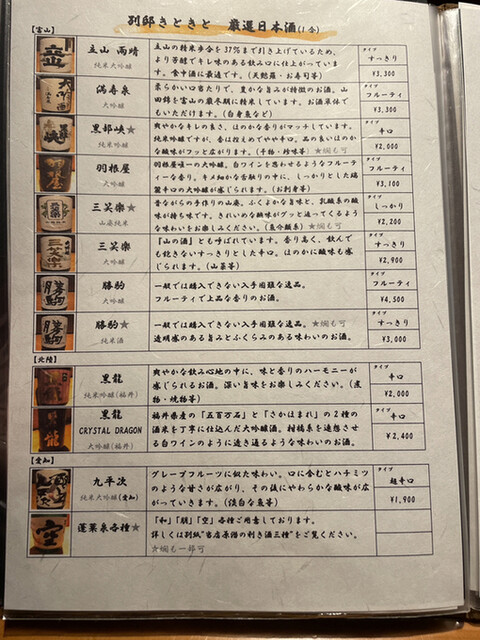 別邸きときと 厳選日本酒(1合)
【富山】
立山 雨晴
純米大吟醸
立山の精米歩合を37%まで引き上げているため、
より芳醇でキレ味のある飲み口に仕上がっていま
す。食中酒に最適です。(天麩羅・お寿司等)
タイプ
すっきり
¥3,300
満寿泉
大吟醸
柔らかい口当たりで、豊かな旨みが特徴のお酒。山
田錦を富山の厳冬期に精米しています。お酒単体で
もいただけます。(白身魚など)
タイプ
フルーティ
¥3,300
黒部峡★
純米吟醸
爽やかなキレの良さ、ほのかな香りがマッチしています。
純米吟醸ですが、香は控えめでやや辛口。品の良いほのか
な酸味がフッと広がります。(干物・珍味等)★燗も可
タイプ
辛口
¥2,000
羽根屋
大吟醸
羽根屋唯一の大吟醸。白ワインを思わせるようなフルーテ
ィーな香り。キメ細かな舌触りの中に、しっかりとした端
麗辛口の大吟醸が感じられます。(お刺身等)
タイプ
フルーティ
¥3,100
三笑楽★
山廃純米
昔ながらの手作りの山廃。ふくよかな旨味と、乳酸系の酸
味が持ち味です。きれいめな酸味がグッと迫ってくるよう
な味わいをお楽しみください。(魚介類系)★燗も可
タイプ
しっかり
¥2,200
三笑楽
大吟醸
「山の酒」とも呼ばれています。香り高く、飲んで
も飽きないすっきりとした辛口。ほのかに酸味も感
じられます。(山菜等)
タイプ
すっきり
¥2,900
勝駒
大吟醸
一般では購入できない入手困難な逸品。
フルーティで上品な香りのお酒。
タイプ
フルーティ
¥4,500
勝駒★
純米酒
一般では購入できない入手困難な逸品。★燗も可
透明感のある旨みとふくらみのある味わいのお酒。
タイプ
すっきり
¥3,000
【北陸】
黒龍
純米吟醸(福井)
爽やかな飲み心地の中に、味と香りのハーモニーが
感じられるお酒。深い旨味をお楽しみください。(煮
物・焼物等)
タイプ
辛口
¥2,000
黒龍
CRYSTAL DRAGON
大吟醸(福井)
福井県産の「五百万石」と「さかほまれ」の2種の
酒米を丁寧に仕込んだ大吟醸酒。柑橘系を連想させ
る白ワインのように透き通るような味わいのお酒。
タイプ
辛口
¥2,400
【愛知】
九平次
純米大吟醸(愛知)
グレープフルーツに似た味わい。口に含むとハチミツ
のような甘さが広がり、その後にやわらかな酸味が広
がっていきます。(淡白な魚等)
タイプ
超辛口
¥1,900
蓬莱泉各種★
「和」「朋」「空」各種ご用意しております。
詳しくは別紙"当店原価の利き酒三種"をご覧ください。
★燗も一部可